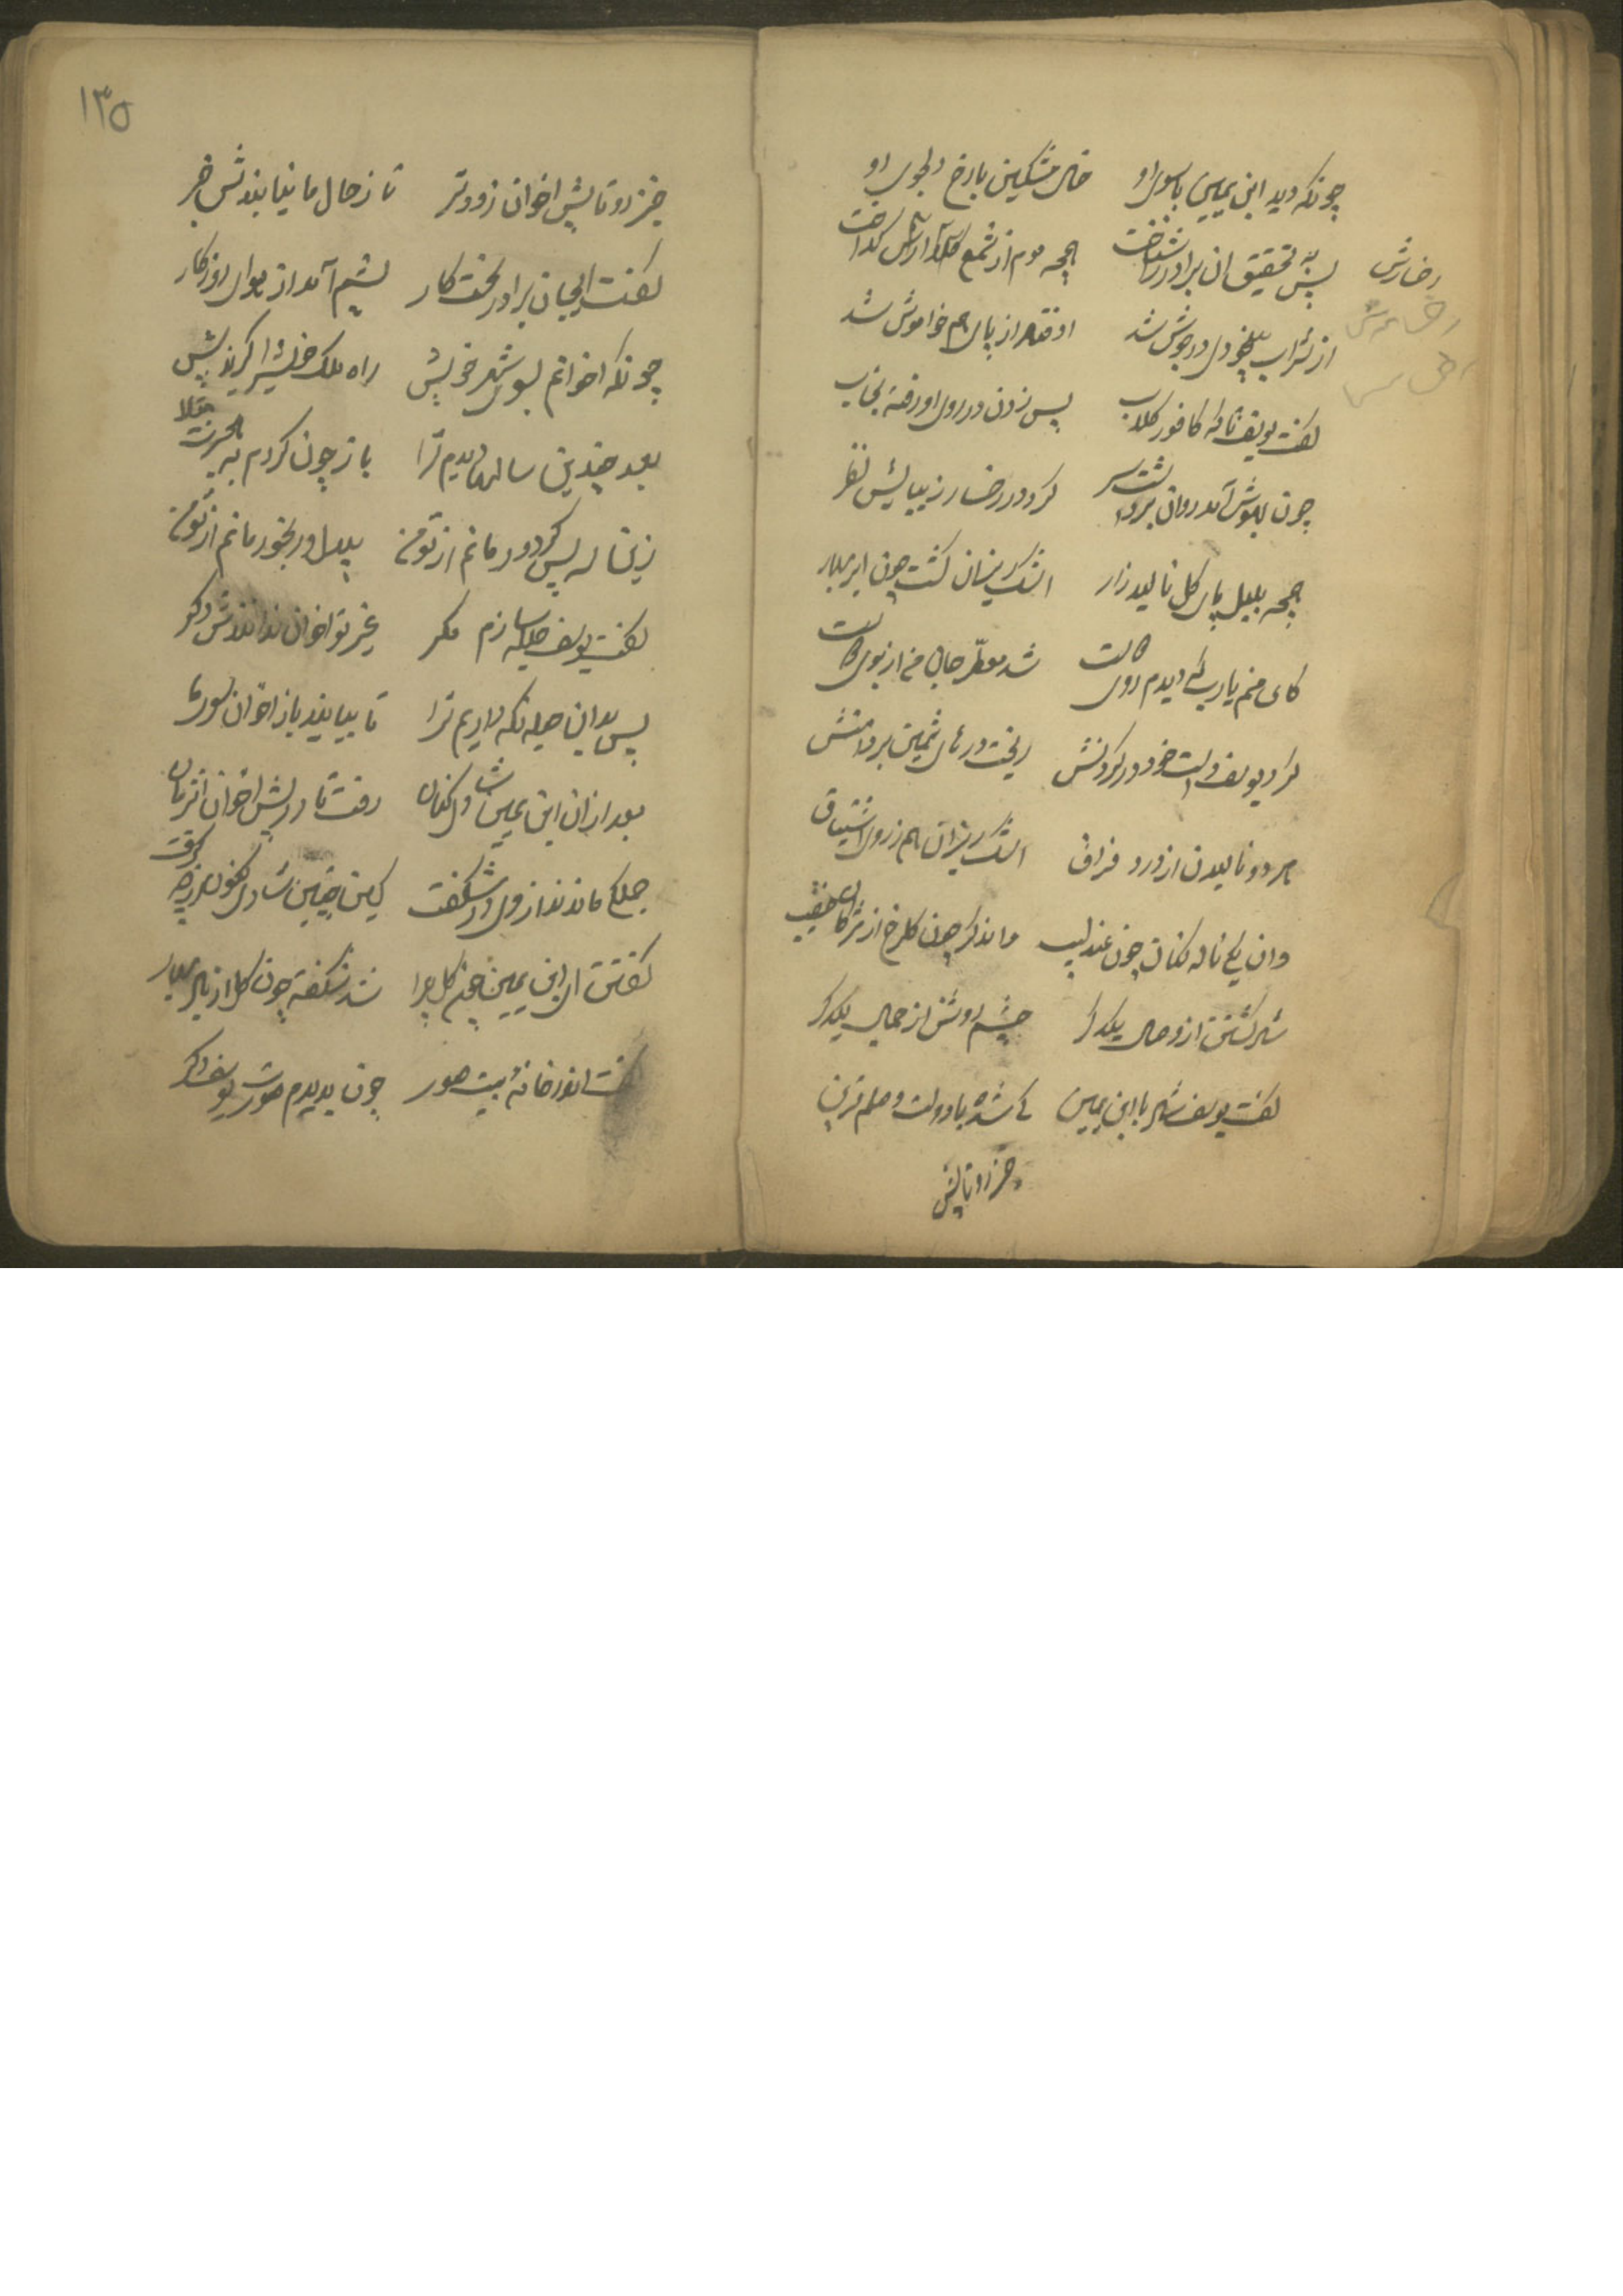 چونکه دید ابن یمین باسوی او خال مشکین بارخ دلجوی او
پس به تحقیق ان برادر را شناخت همچه موم از شمع آتش گداخت
رخسارش
از شراب بیخودی در جوش شد اوفتاد از پای هم خاموش شد
گفت یوسف تا که کافور گلاب پس زدن در روی او رفته بخاب
چون بهوش آمد روان برداشت سر کرد در رخسار زیبایش نظر
همچه بلبل پای گل نالید زار اشک ریزان گشت چون ابر بهار
کای منم یارب که دیدم روی شد معطر جان من از بوی
کرد یوسف دست خود در گردنش ریخت درهای ثمین بر دامنش
هر دو نالیدن از درد فراق اشک ریزان هم ز روی اشتیاق
وان یکی ناله کنان چون عندلیب واندکر چون کلرخ از
شاد کشتن از وصال یکدکر چشم روشن از جمال یکدکر
گفت یوسف شاه با ابن یمین کی شده با دولت وصلم قرین
خیز رو تا پیش
۱۳۵
خیز رو تا پیش اخوان زودتر تا ز حال ما نیابندش خبر
گفت ایجان برادر بخت کار پشیم آمد از هوای روزکار
چونکه اخوانم بسوی شهر خویش راه ملک خویش را گیرند پیش
بعد چندین سالها دیدم ترا باز چون کردم به هجرت مبتلا
زینسان پس کی دور مانم از تو من بیدل و رنجور مانم از تو من
گفت یوسف حیله سازم مکر غیر تو اخوان ندانندش دکر
پس بدان حیله نکه داریم ترا تا بیایند باز اخوان سوی ما
بعد ازان ابن یمین شادی کنان رفت تا در پیش اخوان انزمان
جملکی ماندند از وی در شکفت کین چنین شادی کنون
گفتش ان ابن یمین خنده کل چرا شد شکفته چون کل از باد بهار
گفت اندر خانهٔ بیت صور چون بدیدم صورت یوسف دکر